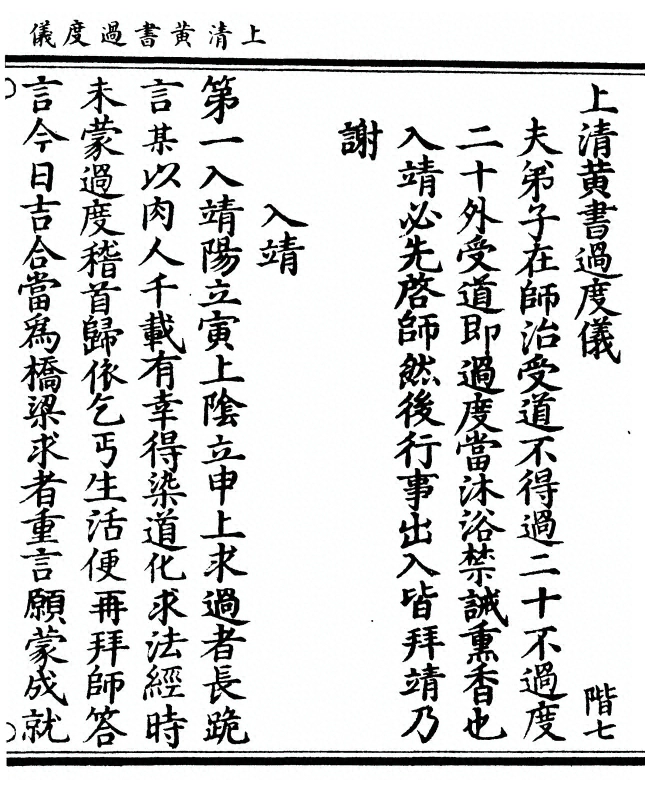 上清黄書過度儀
上清黄書過度儀 階七
夫弟子在師治受道不得過二十不過度
二十外受道即過度當沐浴禁誡熏香也
入靖必先啓師然後行事出入皆拜靖乃
謝
入靖
第一入靖陽立寅上陰立申上求過者長跪
言某以肉人千載有幸得染道化求法經時
未蒙過度稽首歸依乞丐生活便再拜師答
言今日吉合當爲橋梁求者重言願蒙成就